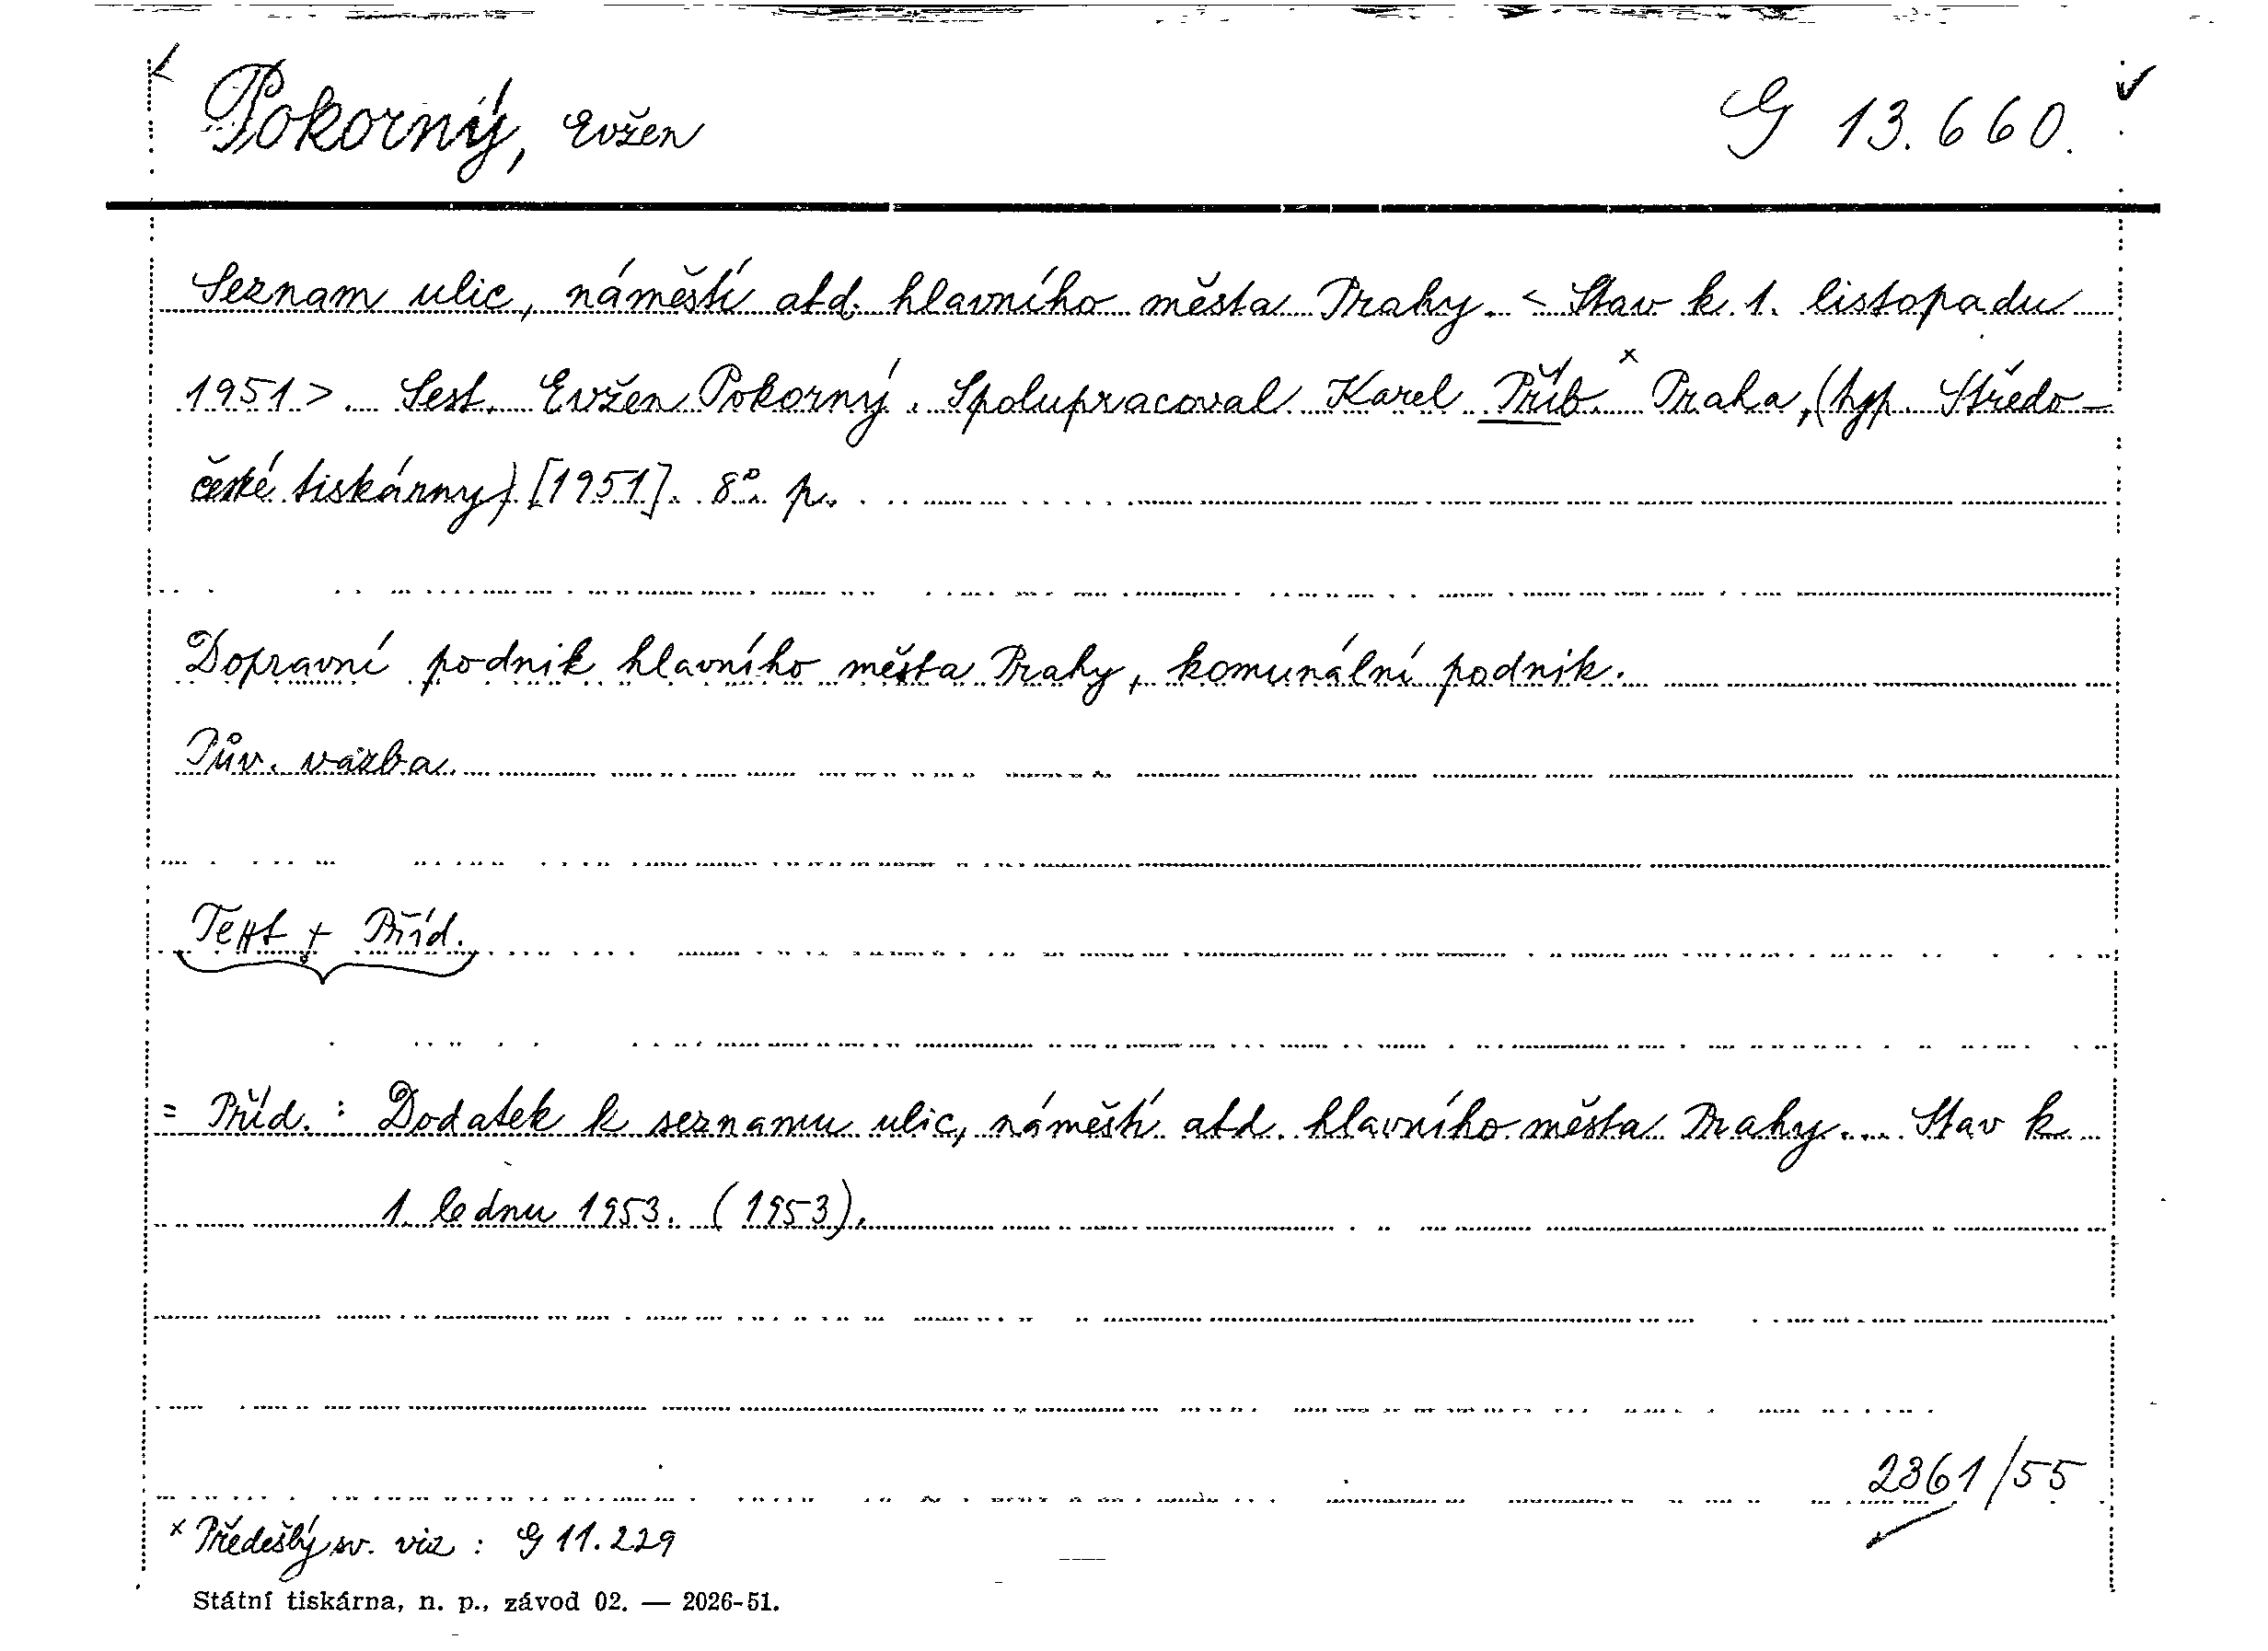 Pokorný, Evžen G 13.660.
Seznam ulic, náměstí atd. hlavního města Prahy. < Stav k 1. listopadu
1951 >. Sest. Evžen Pokorný. Spolupracoval Karel Přib. x Praha, (typ. Středo-
české tiskárny) [1951]. 8°. p.
Dopravní podnik hlavního města Prahy, komunální podnik.
Pův. vazba.
Text + Příd.
= Příd. : Dodatek k seznamu ulic, náměstí atd. hlavního města Prahy... Stav k
1. lednu 1953. (1953).
2361/55
x Předešlý sv. viz : G 11.229
Státní tiskárna, n. p., závod 02. — 2026-51.